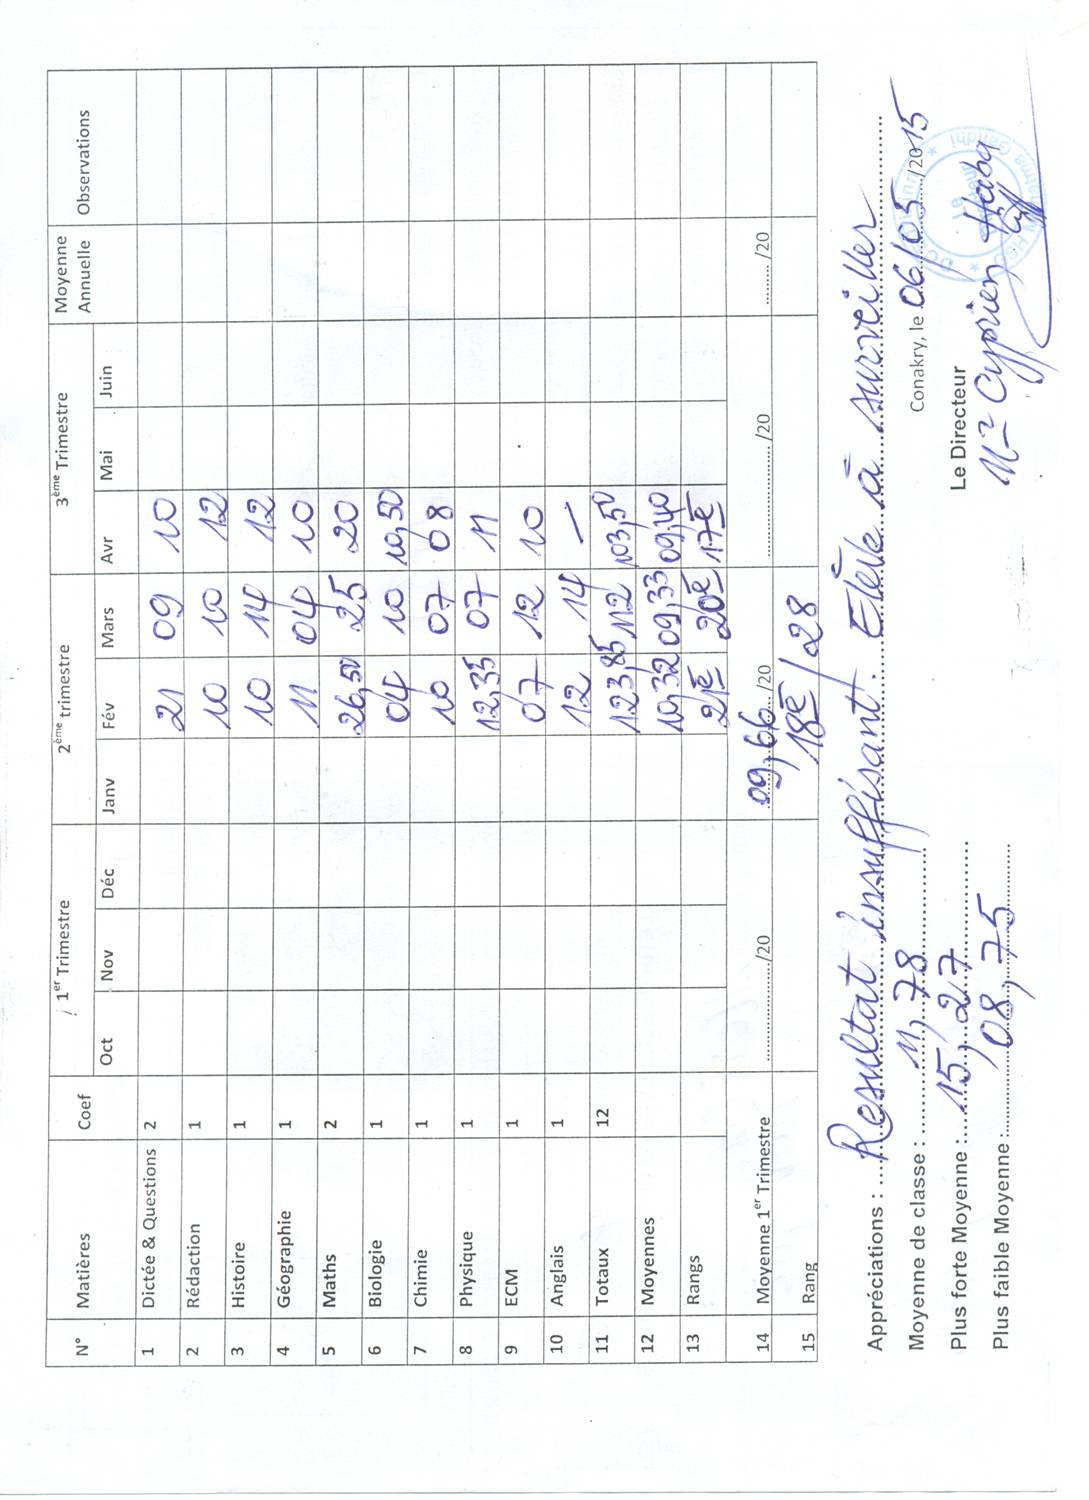 N° Matières Coef 1er Trimestre 2ème trimestre 3ème Trimestre Moyenne Annuelle Observations
Oct Nov Déc Janv Fév Mars Avr Mai Juin
1 Dictée & Questions 2 21 09 10
2 Rédaction 1 10 10 12
3 Histoire 1 10 14 12
4 Géographie 1 11 04 10
5 Maths 2 26,50 25 20
6 Biologie 1 04 10 10,50
7 Chimie 1 10 07 08
8 Physique 1 12,35 07 11
9 ECM 1 07 12 10
10 Anglais 1 12 14 —
11 Totaux 12 123,85 112 103,50
12 Moyennes 10,32 09,33 09,40
13 Rangs 21e 20e 17e
14 Moyenne 1er Trimestre ............/20 09,66/20 ............/20 ......./20
15 Rang 18e/28
Appréciations : Resultat insuffisant. Elève à surveiller
Moyenne de classe : 11,78
Conakry, le 06/05/2015
Plus forte Moyenne : 15,27
Le Directeur
Plus faible Moyenne : 08,75
Mr Cyprien Haba